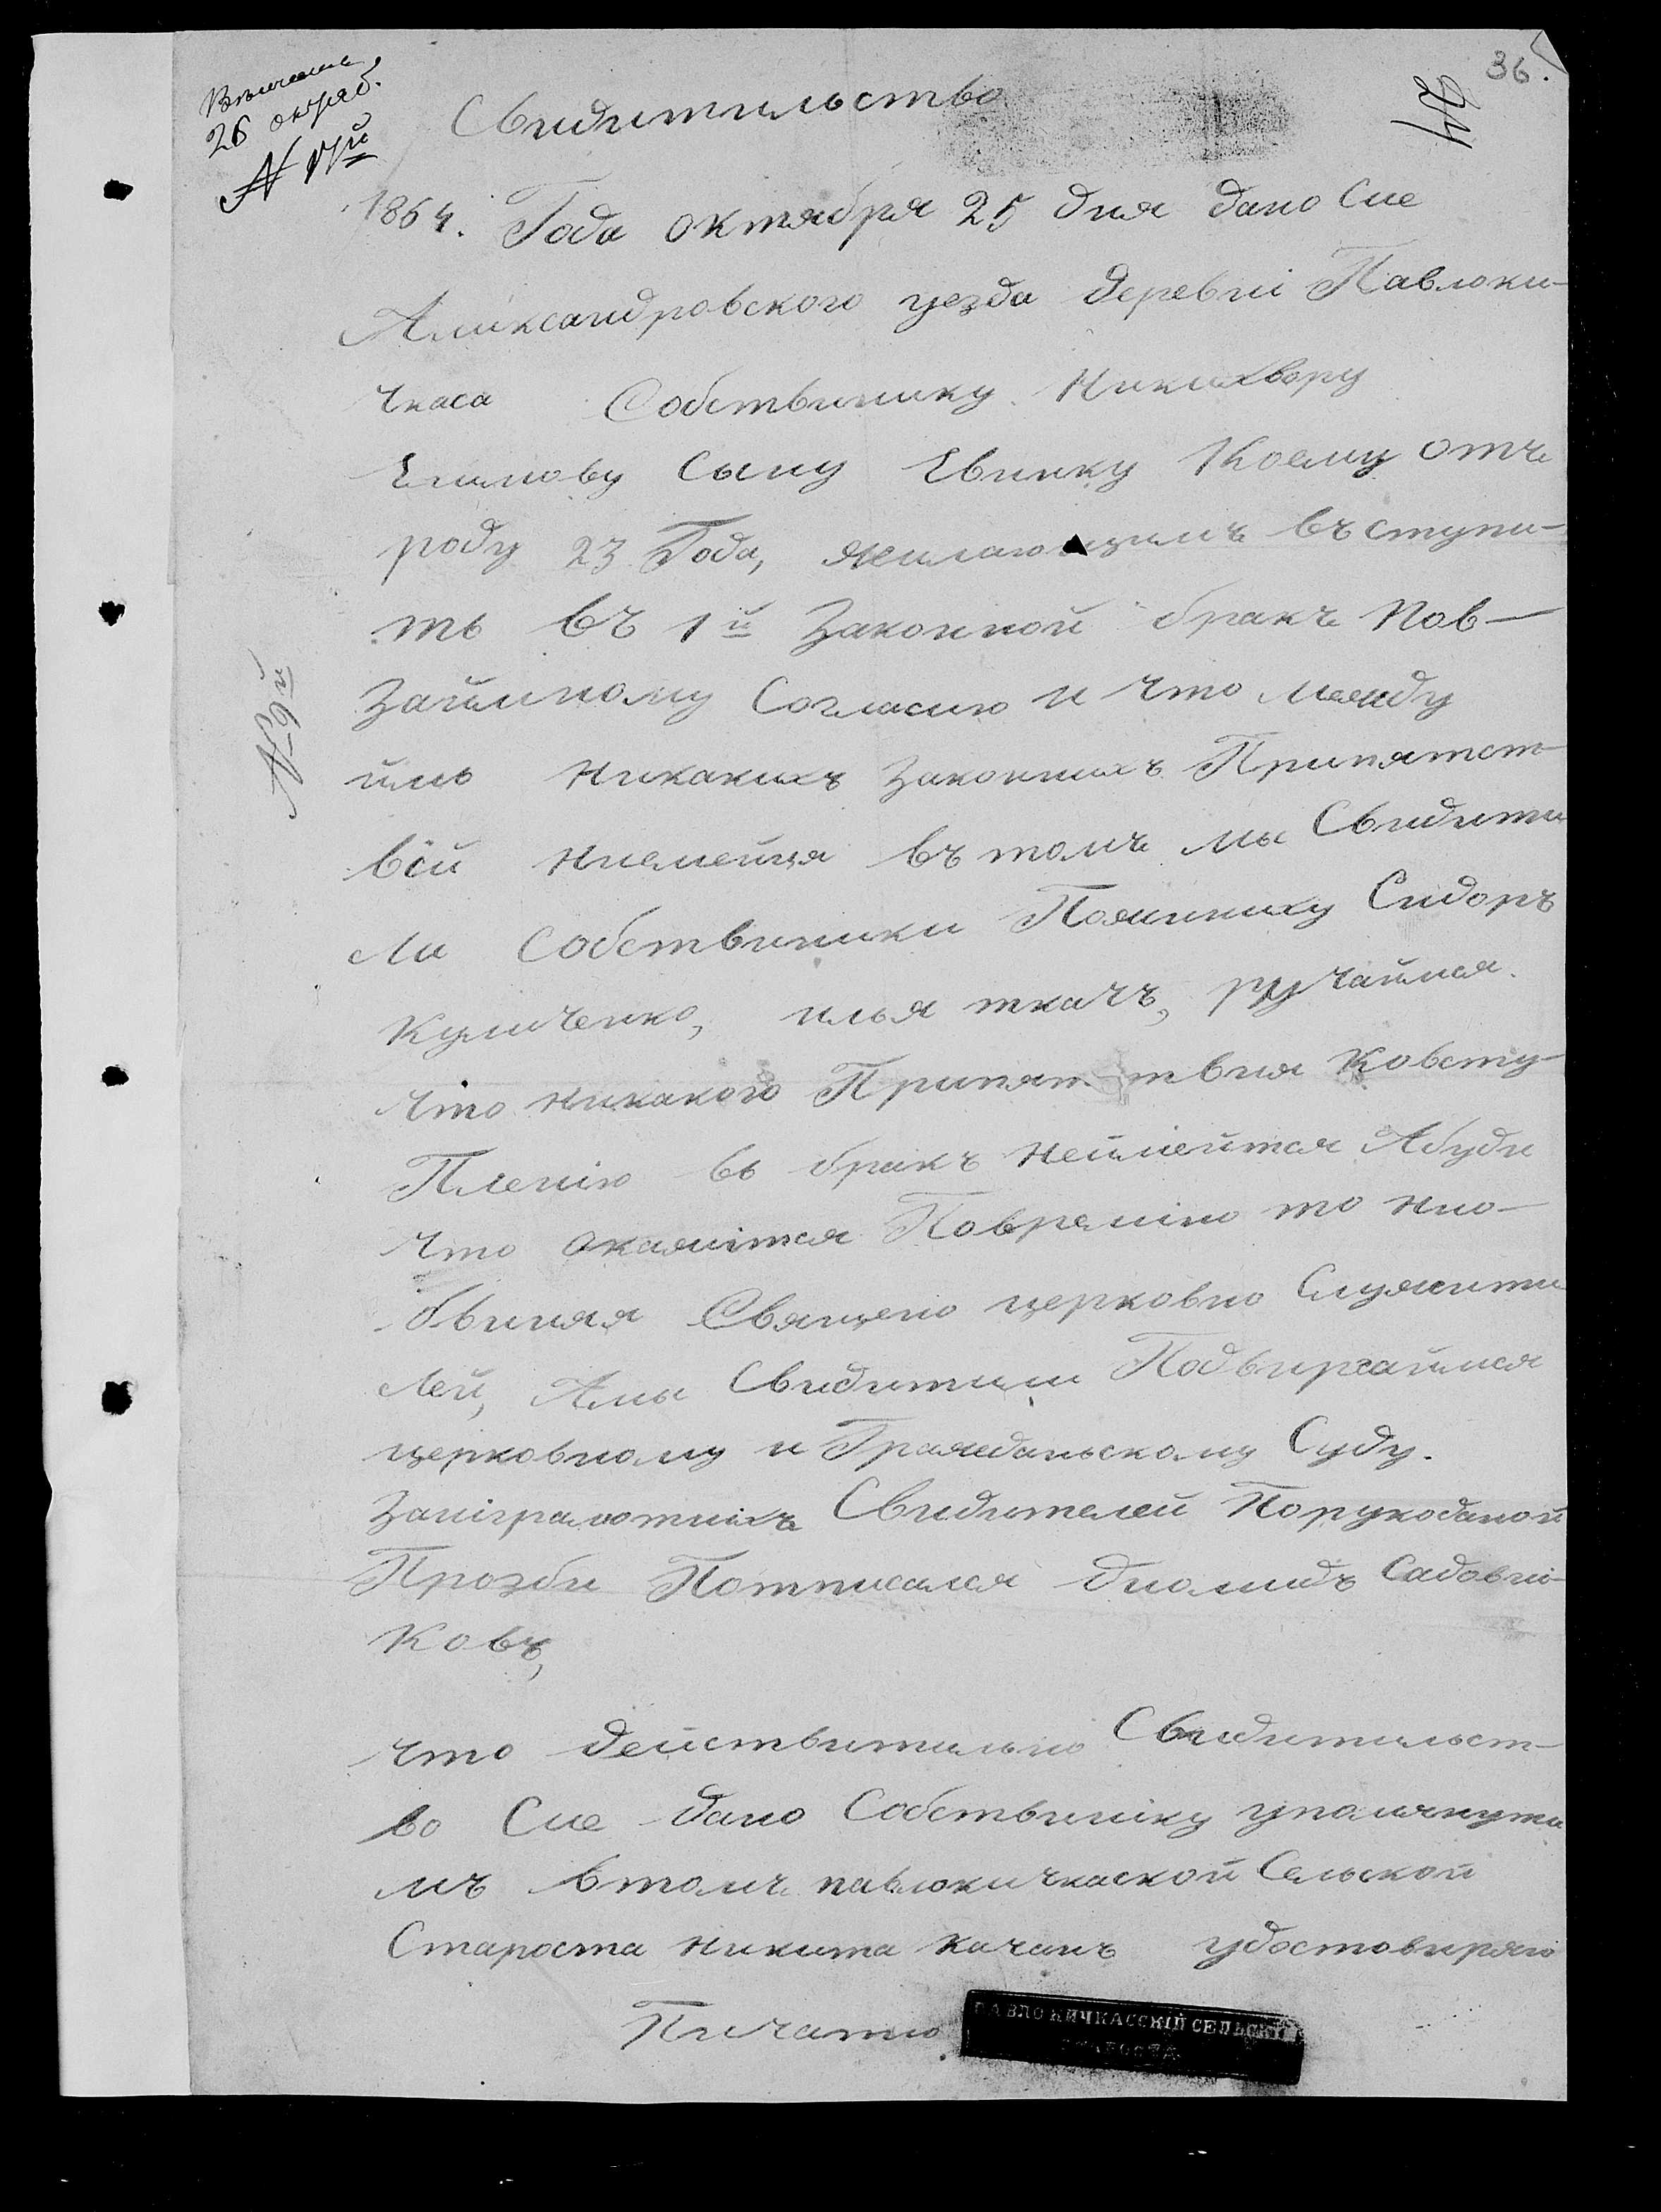 36.
44
Венчанъ
26 октяб.
№ 17й
Свидитильство
1864. Года октября 25 дня дано Сие
Аликсандровского уезда деревні Павлоки-
чкаса Собствинику Никихвору
Емилову Сыну Евинку Коему отъ
роду 23 Года, жилающимъ въступи-
ть въ 1й Законной бракъ Пов-
Зайимному Согласию и что между
№ 9й
йимъ Никакихъ Законихъ Припятст-
вїй Ниемейця въ томъ мы Свидити
ли Собствиники Поженишку Сидоръ
Куличенко, илья ткачъ, ручаймся.
что никакого Припятствия Ковсту-
Пленію въ бракъ Неймейтся Абуди
что окажится Повремїню то Нио-
бвиняя Священо церковно Служити
лей, Амы Свидитили Подвиргаймся
церковному и Гражданьскому Суду.
Занїграмотнихъ Свидителей Порукоданой
Прозби Потписался Диомидъ Садовні-
Ковъ,
что действитильно Свидитильст-
во Сие дано Собствиніку упомянути
мъ втомъ павлокичкаской Сельской
Староста Никита Качанъ удостовиряю
Пичатю
ПАВЛОКИЧКАССКІЙ СЕЛЬСКІЙ
СТАРОСТА